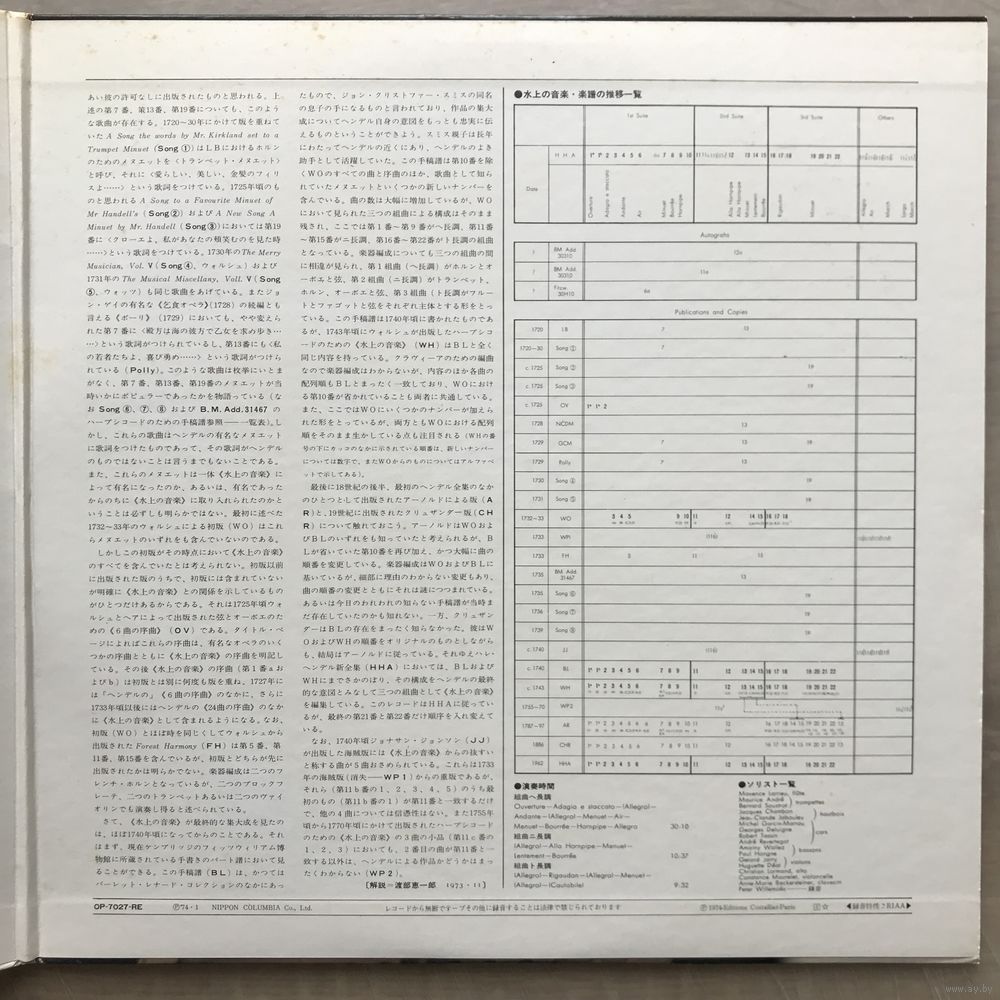 あい彼の許可なしに出版されたものと思われる。上
述の第7番、第13番、第19番についても、このよう
な歌がある。1720～30年にかけて版を重ねて
いた A Song the words by Mr. Kirkland set to a
Trumpet Minuet (Song ①) はLBにおけるホルン
のためのメヌエットを〈トランペット・メヌエット〉
と呼び、それに〈愛らしい、美しい、金髪のフィリ
スよ……〉という歌詞をつけている。1725年頃のも
のと思われる A Song to a Favourite Minuet of
Mr Handell's (Song②) および A New Song A
Minuet by Mr. Handell (Song③)においては第19
番に〈クローエよ、私があなたの頬笑むのを見た時
……〉という歌詞をつけている。1730年の The Merry
Musician, Vol. V (Song④、ウォルシュ) および
1731年の The Musical Miscellany, Voll. V (Song
⑤、ウォッツ) も同じ歌をあげている。またジョ
ン・ゲイの有名な《乞食オペラ》(1728) の続編とも
言える《ポーリ》(1729) においても、やや変えら
れた第7番に〈殿方は海の彼方で乙女を求め歩き…
…〉という歌詞がつけられているし、第13番にも〈私
の若者たちよ、喜び勇め……〉という歌詞がつけら
れている (Polly)。このような歌曲は枚挙にいとま
がなく、第7番、第13番、第19番のメヌエットが当
時いかにポピュラーであったかを物語っている (な
お Song⑥、⑦、⑧ および B.M. Add.31467 の
ハープシコードのための手稿譜参照——一覧表)。し
かし、これらの歌曲はヘンデルの有名なメヌエット
に歌詞をつけたものであって、その歌詞がヘンデル
のものではないことは言うまでもないことである。
また、これらのメヌエットは一体《水上の音楽》に
よって有名になったのか、あるいは、有名であった
からのちに《水上の音楽》に取り入れられたのかと
いうことは必ずしも明らかではない。最初に述べた
1732～33年のウォルシュによる初版 (WO) はこれ
らメヌエットのいずれをも含んでいないのである。
しかしこの初版がその時点において《水上の音楽》
のすべてを含んでいたとは考えられない。初版以前
に出版された版のうちで、初版には含まれていない
が明確に《水上の音楽》との関係を示しているもの
がひとつだけあるからである。それは1725年頃ウォ
ルシュとヘアによって出版された弦とオーボエのた
めの《6曲の序曲》(OV) である。タイトル・ペ
ージによればこれらの序曲は、有名なオペラのいく
つかの序曲とともに《水上の音楽》の序曲を明記し
ている。その後《水上の音楽》の序曲 (第1番aお
よびb) は初版とは別に何度も版を重ね、1727年に
は「ヘンデルの」《6曲の序曲》のなかに、さらに
1733年頃以後にはヘンデルの《24曲の序曲》のなか
に《水上の音楽》として含まれるようになる。なお、
初版 (WO) とほぼ時を同じくしてウォルシュから
出版された Forest Harmony (FH) は第5番、第
11番、第15番を含んでいるが、初版とどちらが先に
出版されたかは明らかでない。楽器編成は二つのフ
レンチ・ホルンとなっているが、二つのブロックフ
レーテ、二つのトランペットあるいは二つのヴァイ
オリンでも演奏し得ると述べられている。
さて、《水上の音楽》が最終的な集大成を見たの
は、ほぼ1740年頃になってからのことである。それ
はまず、現在ケンブリッジのフィッツウィリアム博
物館に所蔵されている手書きのパート譜において見
ることができる。この手稿譜 (BL) は、かつては
バーレット・レナード・コレクションのなかにあっ
たもので、ジョン・クリストファー・スミスの同名
の息子の手になるものと言われており、作品の集大
成についてヘンデル自身の意図をもっとも忠実に伝
えるものということができよう。スミス親子は長年
にわたってヘンデルの近くにあり、ヘンデルのよき
助手として活躍していた。この手稿譜は第10番を除
くWOのすべての曲と序曲のほか、歌曲として知ら
れていたメヌエットといくつかの新しいナンバーを
含んでいる。曲の数は大幅に増加しているが、WO
において見られた三つの組曲による構成はそのまま
残され、ここでは第1番～第9番がヘ長調、第11番
～第15番がニ長調、第16番～第22番がト長調の組曲
となっている。楽器編成についても三つの組曲の間
に相違が見られ、第1組曲 (ヘ長調) がホルンとオ
ーボエと弦、第2組曲 (ニ長調) がトランペット、
ホルン、オーボエと弦、第3組曲 (ト長調) がフルー
トとファゴットと弦をそれぞれ主体とする形をとっ
ている。この手稿譜は1740年頃に書かれたものであ
るが、1743年頃にウォルシュが出版したハープシコ
ードのための《水上の音楽》(WH) はBLと全く
同じ内容を持っている。クラヴィーアのための編曲
なので楽器編成はわからないが、内容のほか各曲の
配列順もBLとまったく一致しており、WOにおけ
る第10番が省かれていることも両者に共通している。
また、ここではWOにいくつかのナンバーが加えら
れた形をとっているが、両方ともWOにおける配列
順をそのまま生かしている点も注目される (WHの番
号の下にカッコのなかに示されている順番は、新しいナンバー
については数字で、またWOからのものについてはアルファベ
ットで示してある)。
最後に18世紀の後半、最初のヘンデル全集のなか
のひとつとして出版されたアーノルドによる版 (A
R) と、19世紀に出版されたクリュザンダー版 (CH
R) について触れておこう。アーノルドはWOおよ
びBLのいずれをも知っていたと考えられるが、B
Lが省いていた第10番を再び加え、かつ大幅に曲の
順番を変更している。楽器編成はWOおよびBLに
基いているが、細部に理由のわからない変更もあり、
曲の順番の変更とともにそれは謎につつまれている。
あるいは今日のわれわれの知らない手稿譜が当時ま
だ存在していたのかも知れない。一方、クリュザン
ダーはBLの存在をまったく知らなかった。彼はW
OおよびWHの順番をオリジナルのものとしながら
も、結局はアーノルドに従っている。それゆえハレ・
ヘンデル新全集 (HHA) においては、BLおよび
WHにまでさかのぼり、その構成をヘンデルの最終
的な意図とみなして三つの組曲として《水上の音楽》
を編集している。このレコードはHHAに従ってい
るが、最終の第21番と第22番だけ順序を入れ変えて
いる。
なお、1740年頃ジョナサン・ジョンソン (JJ)
が出版した海賊版には《水上の音楽》からの抜すい
と称する曲が5曲おさめられている。これらは1733
年の海賊版 (消失——WP1) からの重版であるが、
それら (第11b番の1、2、3、4、5) のうち最
初のもの (第11b番の1) が第11番と一致するだけ
で、他の4曲については信憑性はない。また1755年
頃から1770年頃にかけて出版されたハープシコード
のための《水上の音楽》の3曲の小品 (第11c番の
1、2、3) においても、2番目の曲が第11番と一
致する以外は、ヘンデルによる作品かどうかはまっ
たくわからない (WP2)。
〔解説＝渡部恵一郎 1973・11〕
●水上の音楽・楽譜の推移一覧
1st Suite 2nd Suite 3rd Suite Others
Date HHA 1ᵃ 1ᵇ 2 3 4 5 6 7 8 9 10 12 13 14 15 16 17 18 19 20 21 22
Ouverture Adagio e staccato Andante Air Minuet Bourrée Hornpipe Alla Hornpipe Minuet Lentement Bourrée Rigaudon Minuet
Autographs
? BM Add. 30310
? BM Add. 30310 11a
? Fitzw. 30H10 6a
Publications and Copies
1720 LB 7 13
1720—30 Song ① 7
c. 1725 Song ② 19
c. 1725 Song ③ 19
c. 1725 OV 1ᵃ 1ᵇ 2
1728 NCDM 13
1729 GCM 7 13 19
1729 Polly 7 13
1730 Song ④ 19
1731 Song ⑤ 19
1732—33 WO 3 4 5 9 10 11 12 14 15 16 17 18
1733 WPI
1733 FH 5 11 15
1735 BM Add. 31467 13
1735 Song ⑥ 19
1736 Song ⑦ 19
1739 Song ⑧ 19
c. 1740 JJ
c. 1740 BL 1ᵃ 1ᵇ 2 3 4 5 6 7 8 9 11 12 13 14 15 16 17 18 19 20 21 22
c. 1743 WH 1ᵃ 1ᵇ 2 3 4 5 6 7 8 9 11 12 13 14 15 16 17 18 19 20 21 22
1755—70 WP2
1787—97 AR 1ᵃ 1ᵇ 2 3 4 5 6 7 8 9 10 11 12
1886 CHR 1ᵃ 1ᵇ 2 3 4 5 6 7 8 9 10 11 12
1962 HHA 1ᵃ 1ᵇ 2 3 4 5 6 7 8 9 10 11 12 13 14 15 16 17 18 19 20 21 22
●演奏時間
組曲ヘ長調
Ouverture—Adagio e staccato—(Allegro)—
Andante—(Allegro)—Menuet—Air—
Menuet—Bourrée—Hornpipe—Allegro 30:10
組曲ニ長調
(Allegro)—Alla Hornpipe—Menuet—
Lentement—Bourrée 10:37
組曲ト長調
(Allegro)—Rigaudon—(Allegro)—Menuet—
(Allegro)—(Cantabile) 9:32
●ソリスト一覧
Maxence Larrieu, flûte
Maurice André
Bernard Soustrot
trompettes
Jacques Chambon
Jean-Claude Jaboulay
hautbois
Michel Garcin-Marrou
Georges Deluigne
Robert Tassin
André Revertegat
cors
Amaury Wallez
Paul Hongne
bassons
Gerard Jarry
Huguette Déat
violons
Christian Larmand, alto
Constance Maurelet, violoncelle
Anne-Marie Beckensteiner, clavecin
Peter Willemoës——録音
OP-7027-RE Ⓟ74・1 NIPPON COLUMBIA Co., Ltd. レコードから無断でテープその他に録音することは法律で禁じられております Ⓟ 1974-Editions Costallat-Paris ◀録音特性：RIAA▶
www.ay.by